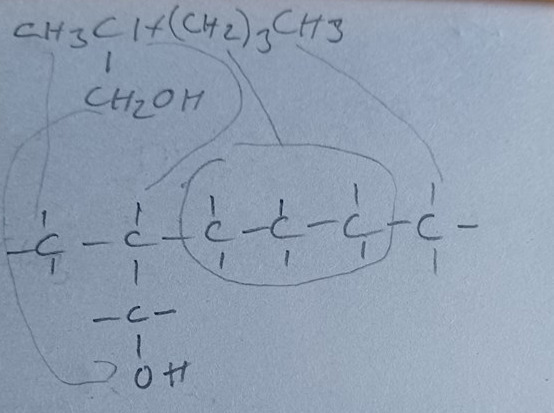 CH3CH(CH2)3CH3
CH2OH
C C C C C C
C
OH